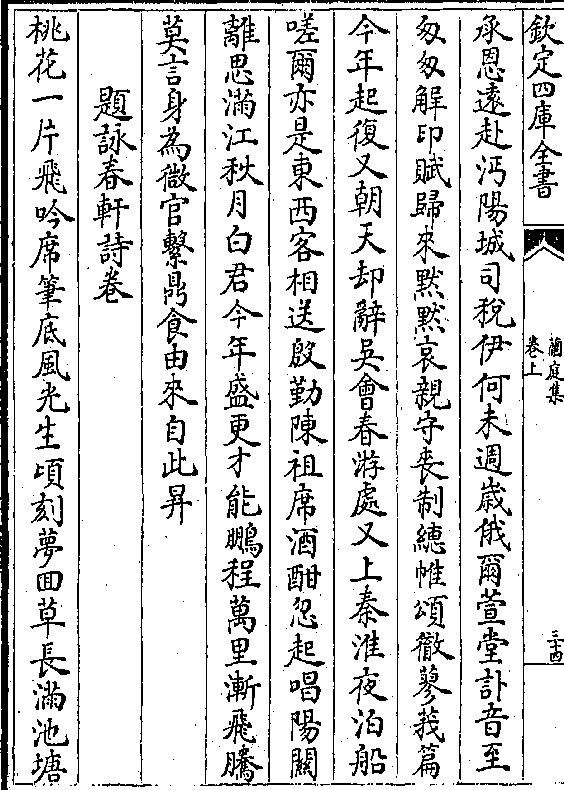 欽定四庫全書
蘭庭集
卷上
三十四
承恩遠赴沔陽城司稅伊何未週歲俄爾萱堂訃音至
匆匆解印賦歸來黙黙哀親守喪制繐帷頌徹蓼莪篇
今年起復又朝天却辭吳會春游處又上秦淮夜泊船
嗟爾亦是東西客相送殷勤陳祖席酒酣忽起唱陽關
離思滿江秋月白君今年盛更才能鵬程萬里漸飛騰
莫言身為微官繫鼎食由來自此昇
題詠春軒詩卷
桃花一片飛吟席筆底風光生頃刻夢回草長滿池塘